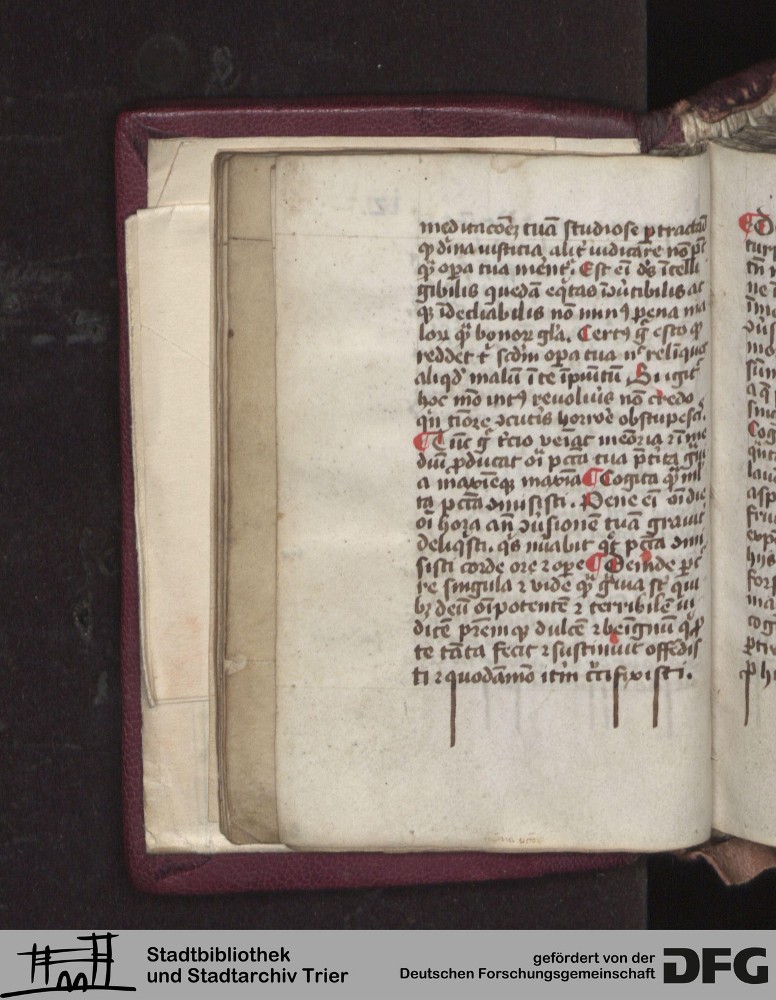 meditacōeꝫ tuā studiose ꝑtractās
ꝙ dīna iusticia alit᷑ iudicare nō pt̄
qͣ oꝑa tua mēnt᷑. Est eī dꝰ ītelli
gibilis quedā eqͥtas īꝯūtibilis ac
qꝫ īdecliabilis nō minꝰ pena ma
loꝝ qͣ bonoꝝ gl̄a. Certꝰ g̊ esto ꝙ
reddet t̄ scd̄m oꝑa tua nͨ relīquet
aliqd̓ malū ī te īpunitū Si igit᷑
hoc mō intꝰ reuoluis nō credo
qn̄ tiōre ꝯcutiꝰ horrore obstupesc.
Tūc g̊ t̓cio veīat meōria ⁊ ī me
diū ꝓducat oīa pctā tua p̄tita
a maxīeqꝫ maxīa Cogita qͣ ml̓
ta pctā ꝯmisisti. Pene eī oī die
oī hora an̄ ꝯūsionē tuā grauit᷑
deliqͥsti. qͥs nūabit qͦt pctā ꝯmi
sisti corde ore ⁊ oꝑe Deinde ꝑt̓
re singula ⁊ vide qͣ g̓uia st̄ qui
bꝫ deū oīpotentē ⁊ terribilē iu
dicē pr̄emqꝫ dulcē ⁊ beīgnū qͥ ꝓ
te tāta fecit ⁊ sustinuit offēdis
ti ⁊ quodāmō itm̄ cͥcifixisti.
Stadtbibliothek
und Stadtarchiv Trier
gefördert von der
Deutschen Forschungsgemeinschaft
DFG